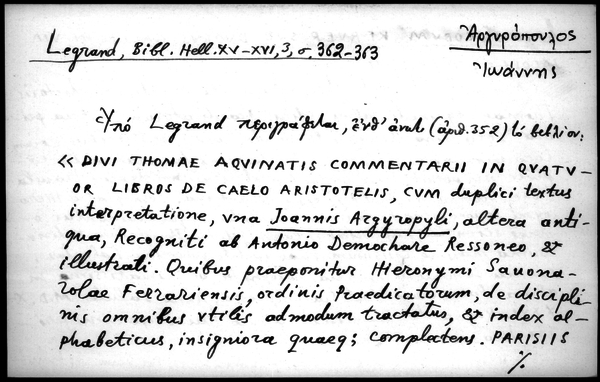 Legrand, Bibl. Hell. XV-XVI, 3, σ. 362-363
Ἀργυρόπουλος
Ἰωάννης
Ὑπό Legrand περιγράφεται, ἐνθ' ἀνωτ. (ἀριθ. 352) τό βιβλίον:
« DIVI THOMAE AQVINATIS COMMENTARII IN QVATV-
OR LIBROS DE CAELO ARISTOTELIS, CVM duplici textus
interpretatione, vna Joannis Argyropyli, altera anti-
qua, Recogniti ab Antonio Demochare Ressoneo, &
illustrati. Quibus praeponitur Hieronymi Sauona-
rolae Ferrariensis, ordinis Praedicatorum, de discipli-
nis omnibus vtilis admodum tractatus, & index al-
phabeticus, insigniora quaeq; complectens. PARISIIS
./.